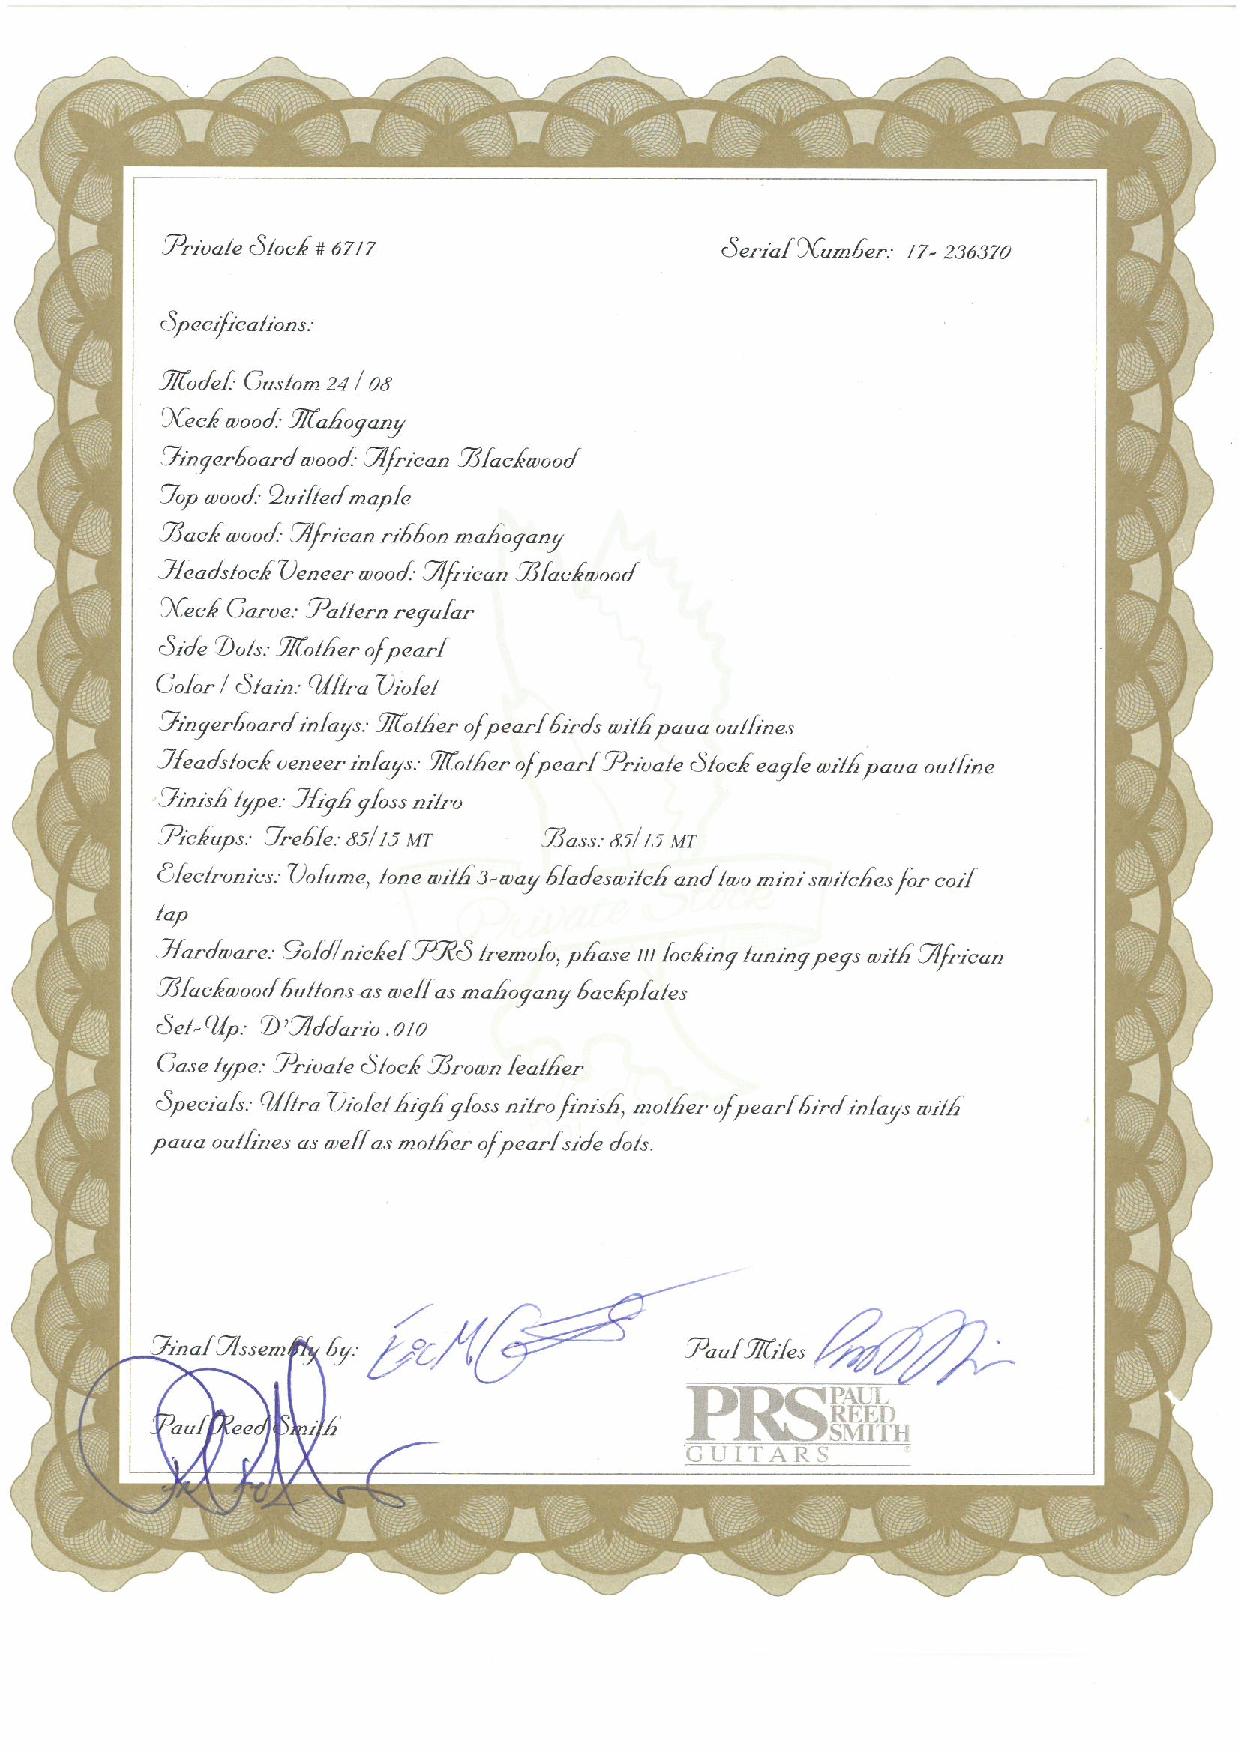 Private Stock # 6717
Serial Number: 17- 236370
Specifications:
Model: Custom 24 / 08
Neck wood: Mahogany
Fingerboard wood: African Blackwood
Top wood: Quilted maple
Back wood: African ribbon mahogany
Headstock Veneer wood: African Blackwood
Neck Carve: Pattern regular
Side Dots: Mother of pearl
Color / Stain: Ultra Violet
Fingerboard inlays: Mother of pearl birds with paua outlines
Headstock veneer inlays: Mother of pearl Private Stock eagle with paua outline
Finish type: High gloss nitro
Pickups: Treble: 85/15 MT Bass: 85/15 MT
Electronics: Volume, tone with 3-way bladeswitch and two mini switches for coil
tap
Private Stock
Hardware: Gold/nickel PRS tremolo, phase III locking tuning pegs with African
Blackwood buttons as well as mahogany backplates
Set-Up: D'Addario .010
Case type: Private Stock Brown leather
Specials: Ultra Violet high gloss nitro finish, mother of pearl bird inlays with
paua outlines as well as mother of pearl side dots.
Final Assembly by:
Paul Miles
Paul Reed Smith
PRS PAUL REED SMITH
GUITARS